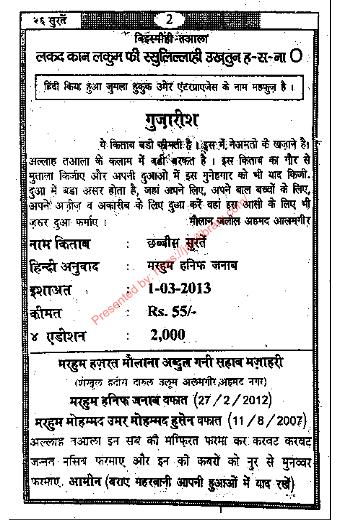 २६ सुरतें 2
बिइस्मीही-तआला
लकद कान लकुम फी रसुलिल्लाही उखतुन ह-स-ना O
हिंदी किया हुआ जुमला हुकुक उमेर एंटरप्राएजेस के नाम महफुज है ।
गुजारीश
ये किताब बडी कीमती है । इस में नेअमतो के खज़ाने है।
अल्लाह तआला के कलाम में बडी बरकत है । इस किताब का गौर से
मुताला किजीए और अपनी दुआओ में इस गुनेहगार को भी याद किजी.
दुआ में बडा असर होता है, जहां अपने लिए, अपने बाल बच्चों के लिए,
अपने अज़ीज़ व अकारीब के लिए दुआ करें वहां इस आसी के लिए भी
ज़रुर दुआ फर्माए । मौलाना जलील अहमद आलमगीर
नाम किताब : छब्बीस सुरतें
हिन्दी अनुवाद : मरहुम हनिफ जनाब
इशाअत : 1-03-2013
कीमत : Rs. 55/-
४ एडीशन : 2,000
मरहुम हज़रत मौलाना अब्दुल गनी साहब मज़ाहरी
(शेखुल हदीस दारुल उलूम आलमगीर, अहमद नगर)
मरहुम हनिफ जनाब वफात (27 / 2 / 2012)
मरहुम मोहम्मद उमर मोहम्मद हुसेन वफात (11 / 8 / 2007)
अल्लाह तआला इन सब की मग्फिरत फरमा कर करवट करवट
जन्नत नसिब फरमाए और इन की कबरों को नुर से मुनव्वर
फरमाए. आमीन (बराए मेहरबानी आपनी दुआओं में याद रखें)